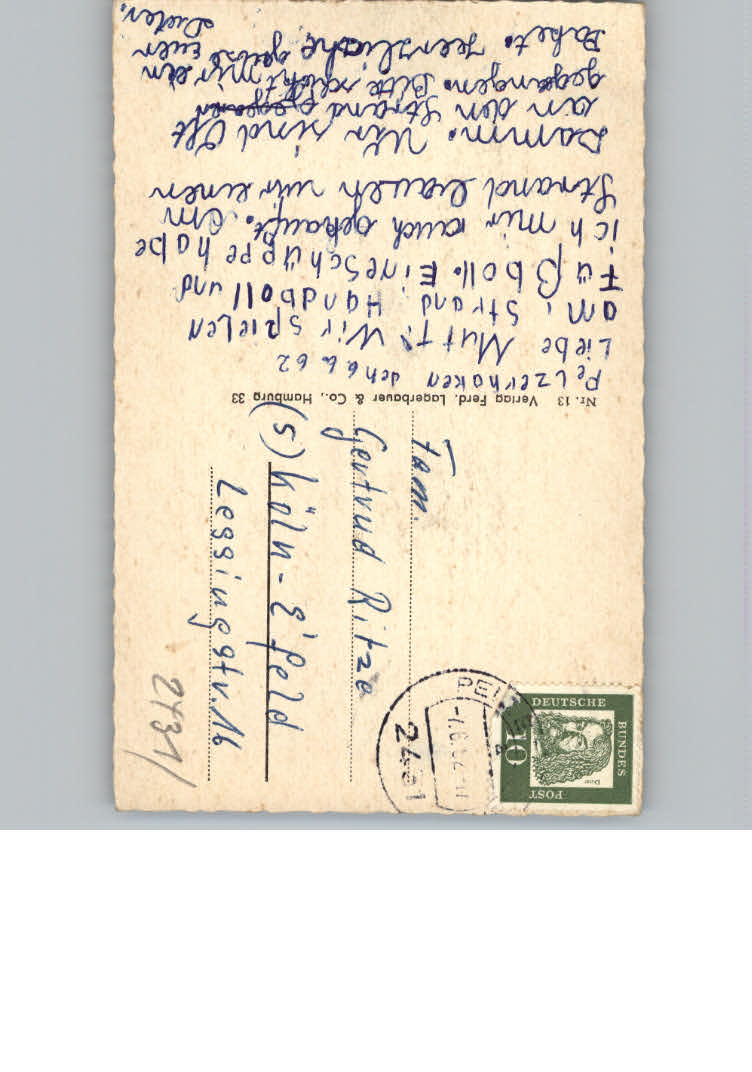 Pelzerhaken den 6 6 62
Liebe Mutt! Wir spielen
am Strand Handball und
Fußboll. Eine Schüppe habe
ich mir auch gekauft. Am
Strand bauen wir einen
Damm. Wir sind Oft
an den Strand gegangen
gegangen. Bitte schickt mir ein
Paket. Herzliche grüße Euer
Dieter.
Nr. 13 Verlag Ferd. Lagerbauer & Co., Hamburg 33
Fam.
Gertrud Ritze
(5) Köln-Eifeld
Lessingstr. 16
2431
PEL
2431
-7.6.62
DEUTSCHE
BUNDES
POST
10